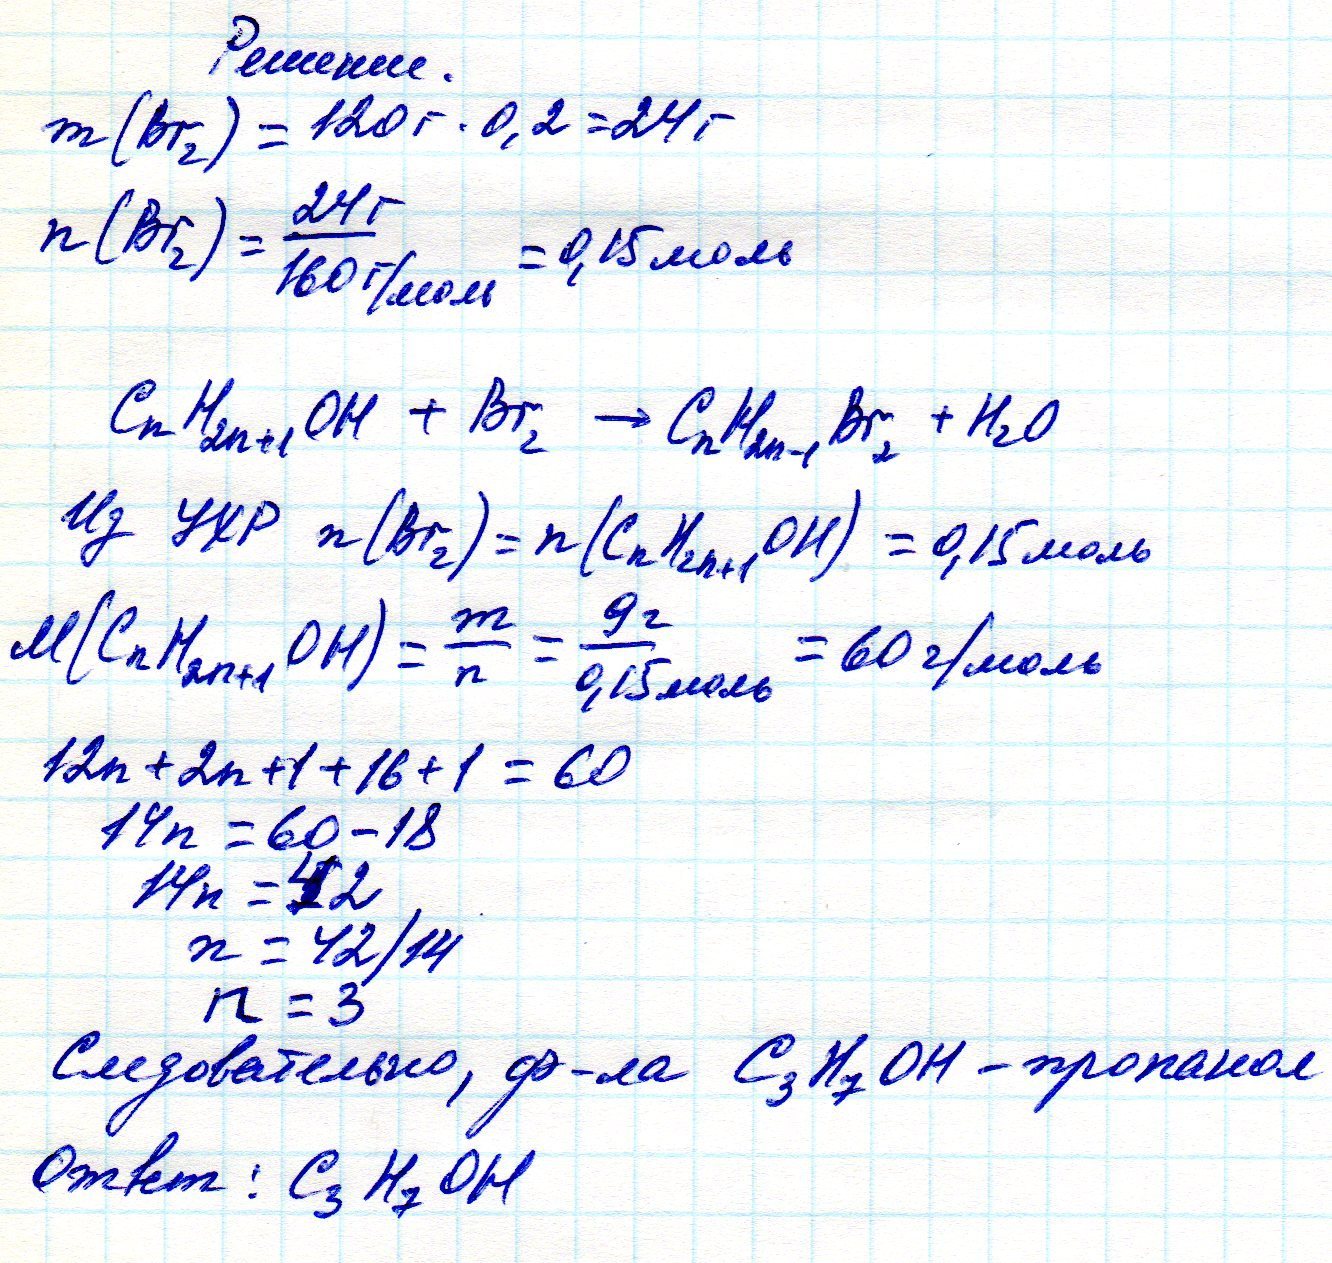 Решение.
m(Br₂) = 120г · 0,2 = 24г
n(Br₂) = 24г / 160г/моль = 0,15 моль
CₙH₂ₙ₊₁OH + Br₂ → CₙH₂ₙ₋₁Br₂ + H₂O
Из УХР n(Br₂) = n(CₙH₂ₙ₊₁OH) = 0,15 моль
M(CₙH₂ₙ₊₁OH) = m/n = 9г / 0,15 моль = 60 г/моль
12n + 2n + 1 + 16 + 1 = 60
14n = 60 - 18
14n = 42
n = 42/14
n = 3
Следовательно, ф-ла C₃H₇OH - пропанол
Ответ: C₃H₇OH